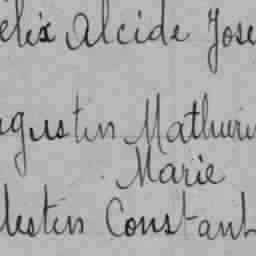 élix Alcide Jose
ugustin Mathuri
Marie
lestin Constant